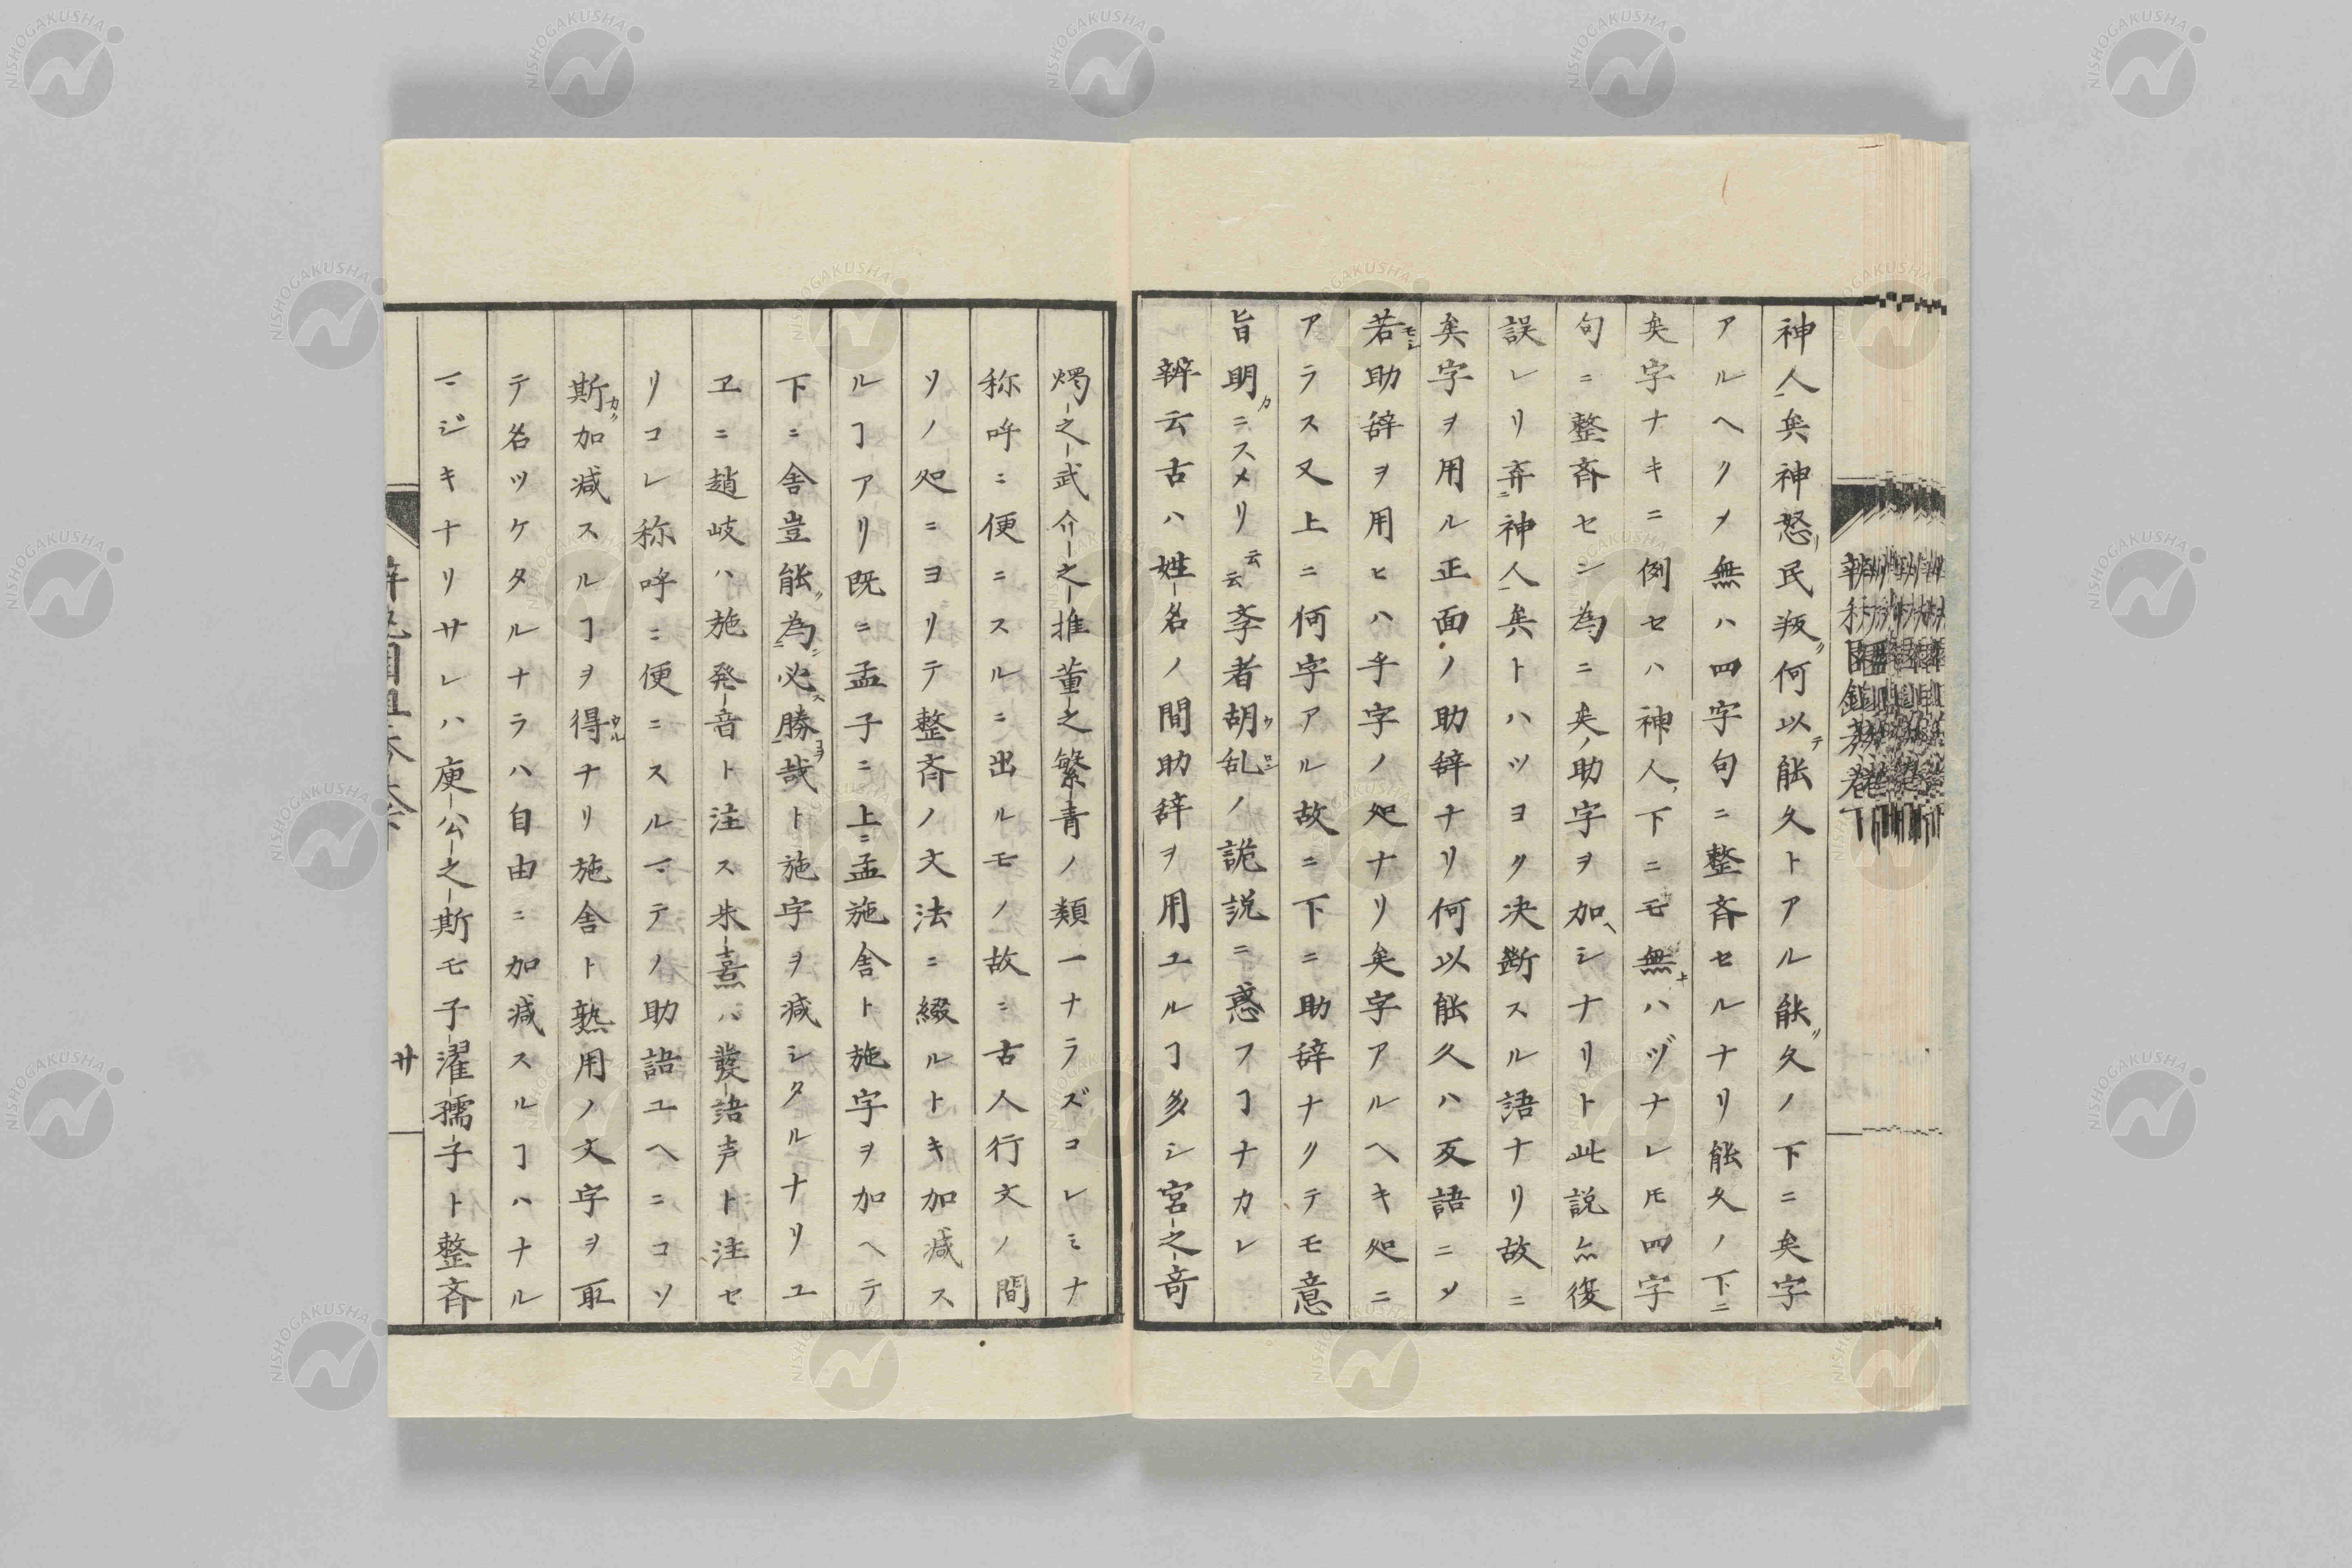 神人矣神怒民叛何以能久トアル能久ノ下ニ矣字
アルヘクメ無ハ四字句ニ整斉セルナリ能久ノ下ニ
矣字ナキニ例セハ神人下ニモ無ハヅナレ𪜈四字
句ニ整斉セン為ニ矣ノ助字ヲ加ヘシナリト此説亦復
誤レリ弃神人矣トハツヨク决斷スル語ナリ故ニ
矣字ヲ用ル正面ノ助辞ナリ何以能久ハ反語ニメ
若助辞ヲ用ヒハ乎字ノ処ナリ矣字アルヘキ処ニ
アラス又上ニ何字アル故ニ下ニ助辞ナクテモ意
旨明カニスメリ云云 斈者胡乱ノ詭説ニ惑フヿナカレ
辨云古ハ姓名ノ間助辞ヲ用ユルヿ多シ宮之奇
燭之武介之推董之繁青ノ類一ナラズコレミナ
称呼ニ便ニスルニ出ルモノ故ニ古人行文ノ間
ソノ処ニヨリテ整斉ノ文法ニ綴ルトキ加减ス
ルヿアリ既ニ孟子ニ上ニ孟施舎ト施字ヲ加ヘテ
下ニ舎豈能為必勝哉ト施字ヲ减シタルナリユ
ヱニ趙岐ハ施発音ト注ス朱熹ハ發語声ト注セ
リコレ称呼ニ便ニスルマテノ助語ユヘニコソ
斯加减スルヿヲ得ナリ施舎ト熟用ノ文字ヲ取
テ名ツケタルナラハ自由ニ加减スルヿハナル
マジキナリサレハ庾公之斯モ子濯孺子ト整斉
廿
NISHOGAKUSHA